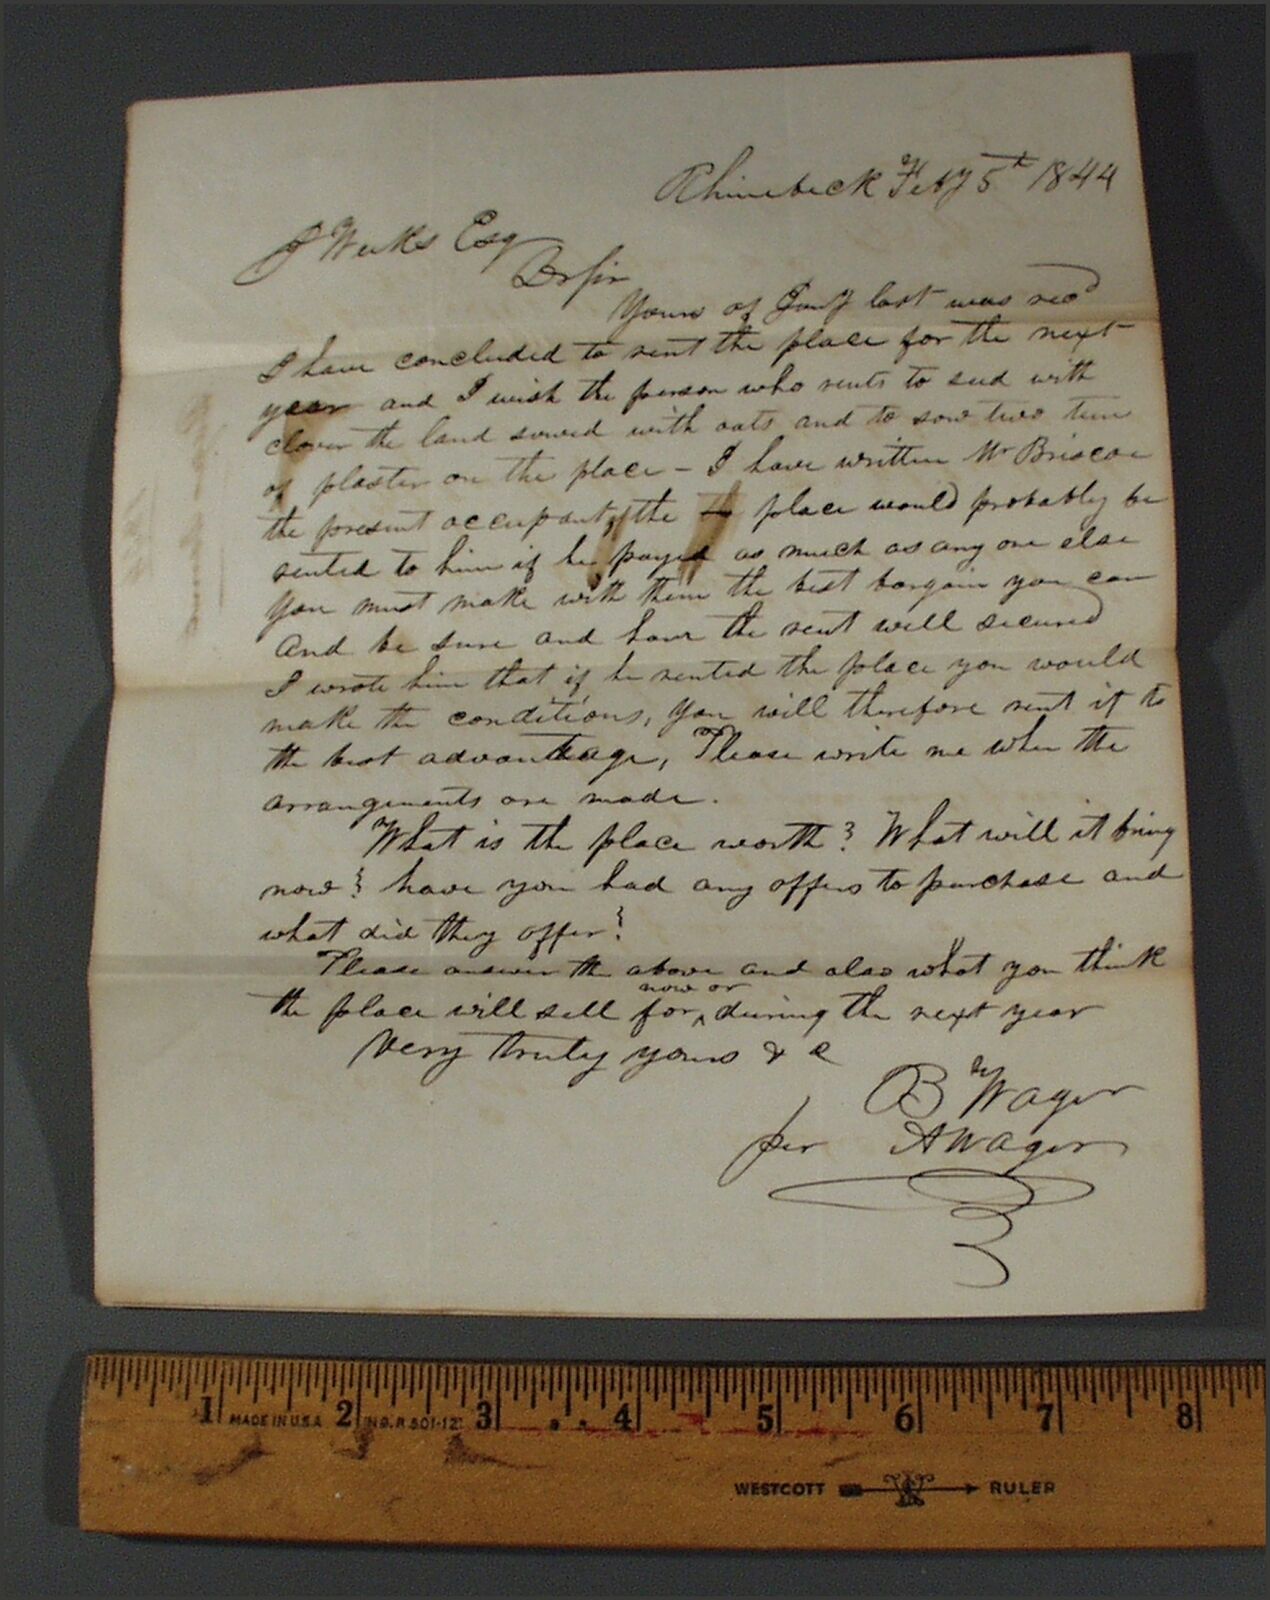 Rhinebeck Feby 5th 1844
J Weeks Esq
Dr Sir
Yours of Jany last was recd
I have concluded to rent the place for the next
year and I wish the person who rents to seed with
clover the land sowed with oats and to sow two tuns
of plaster on the place - I have written Mr Briscoe
the present occupant, the place would probably be
rented to him if he payed as much as any one else
You must make with them the best bargain you can
and be sure and have the rent well secured
I wrote him that if he rented the place you would
make the conditions, you will therefore rent it to
the best advantage, Please write me when the
arrangements are made.
What is the place worth? What will it bring
now? have you had any offers to purchase and
what did they offer?
Please answer the above and also what you think
now or
the place will sell for ^ during the next year
Very truly yours & c
B Wager
per A Wager
1 MADE IN U.S.A. 2 NO. R 501-12 3 4 5 6 7 8
WESTCOTT RULER